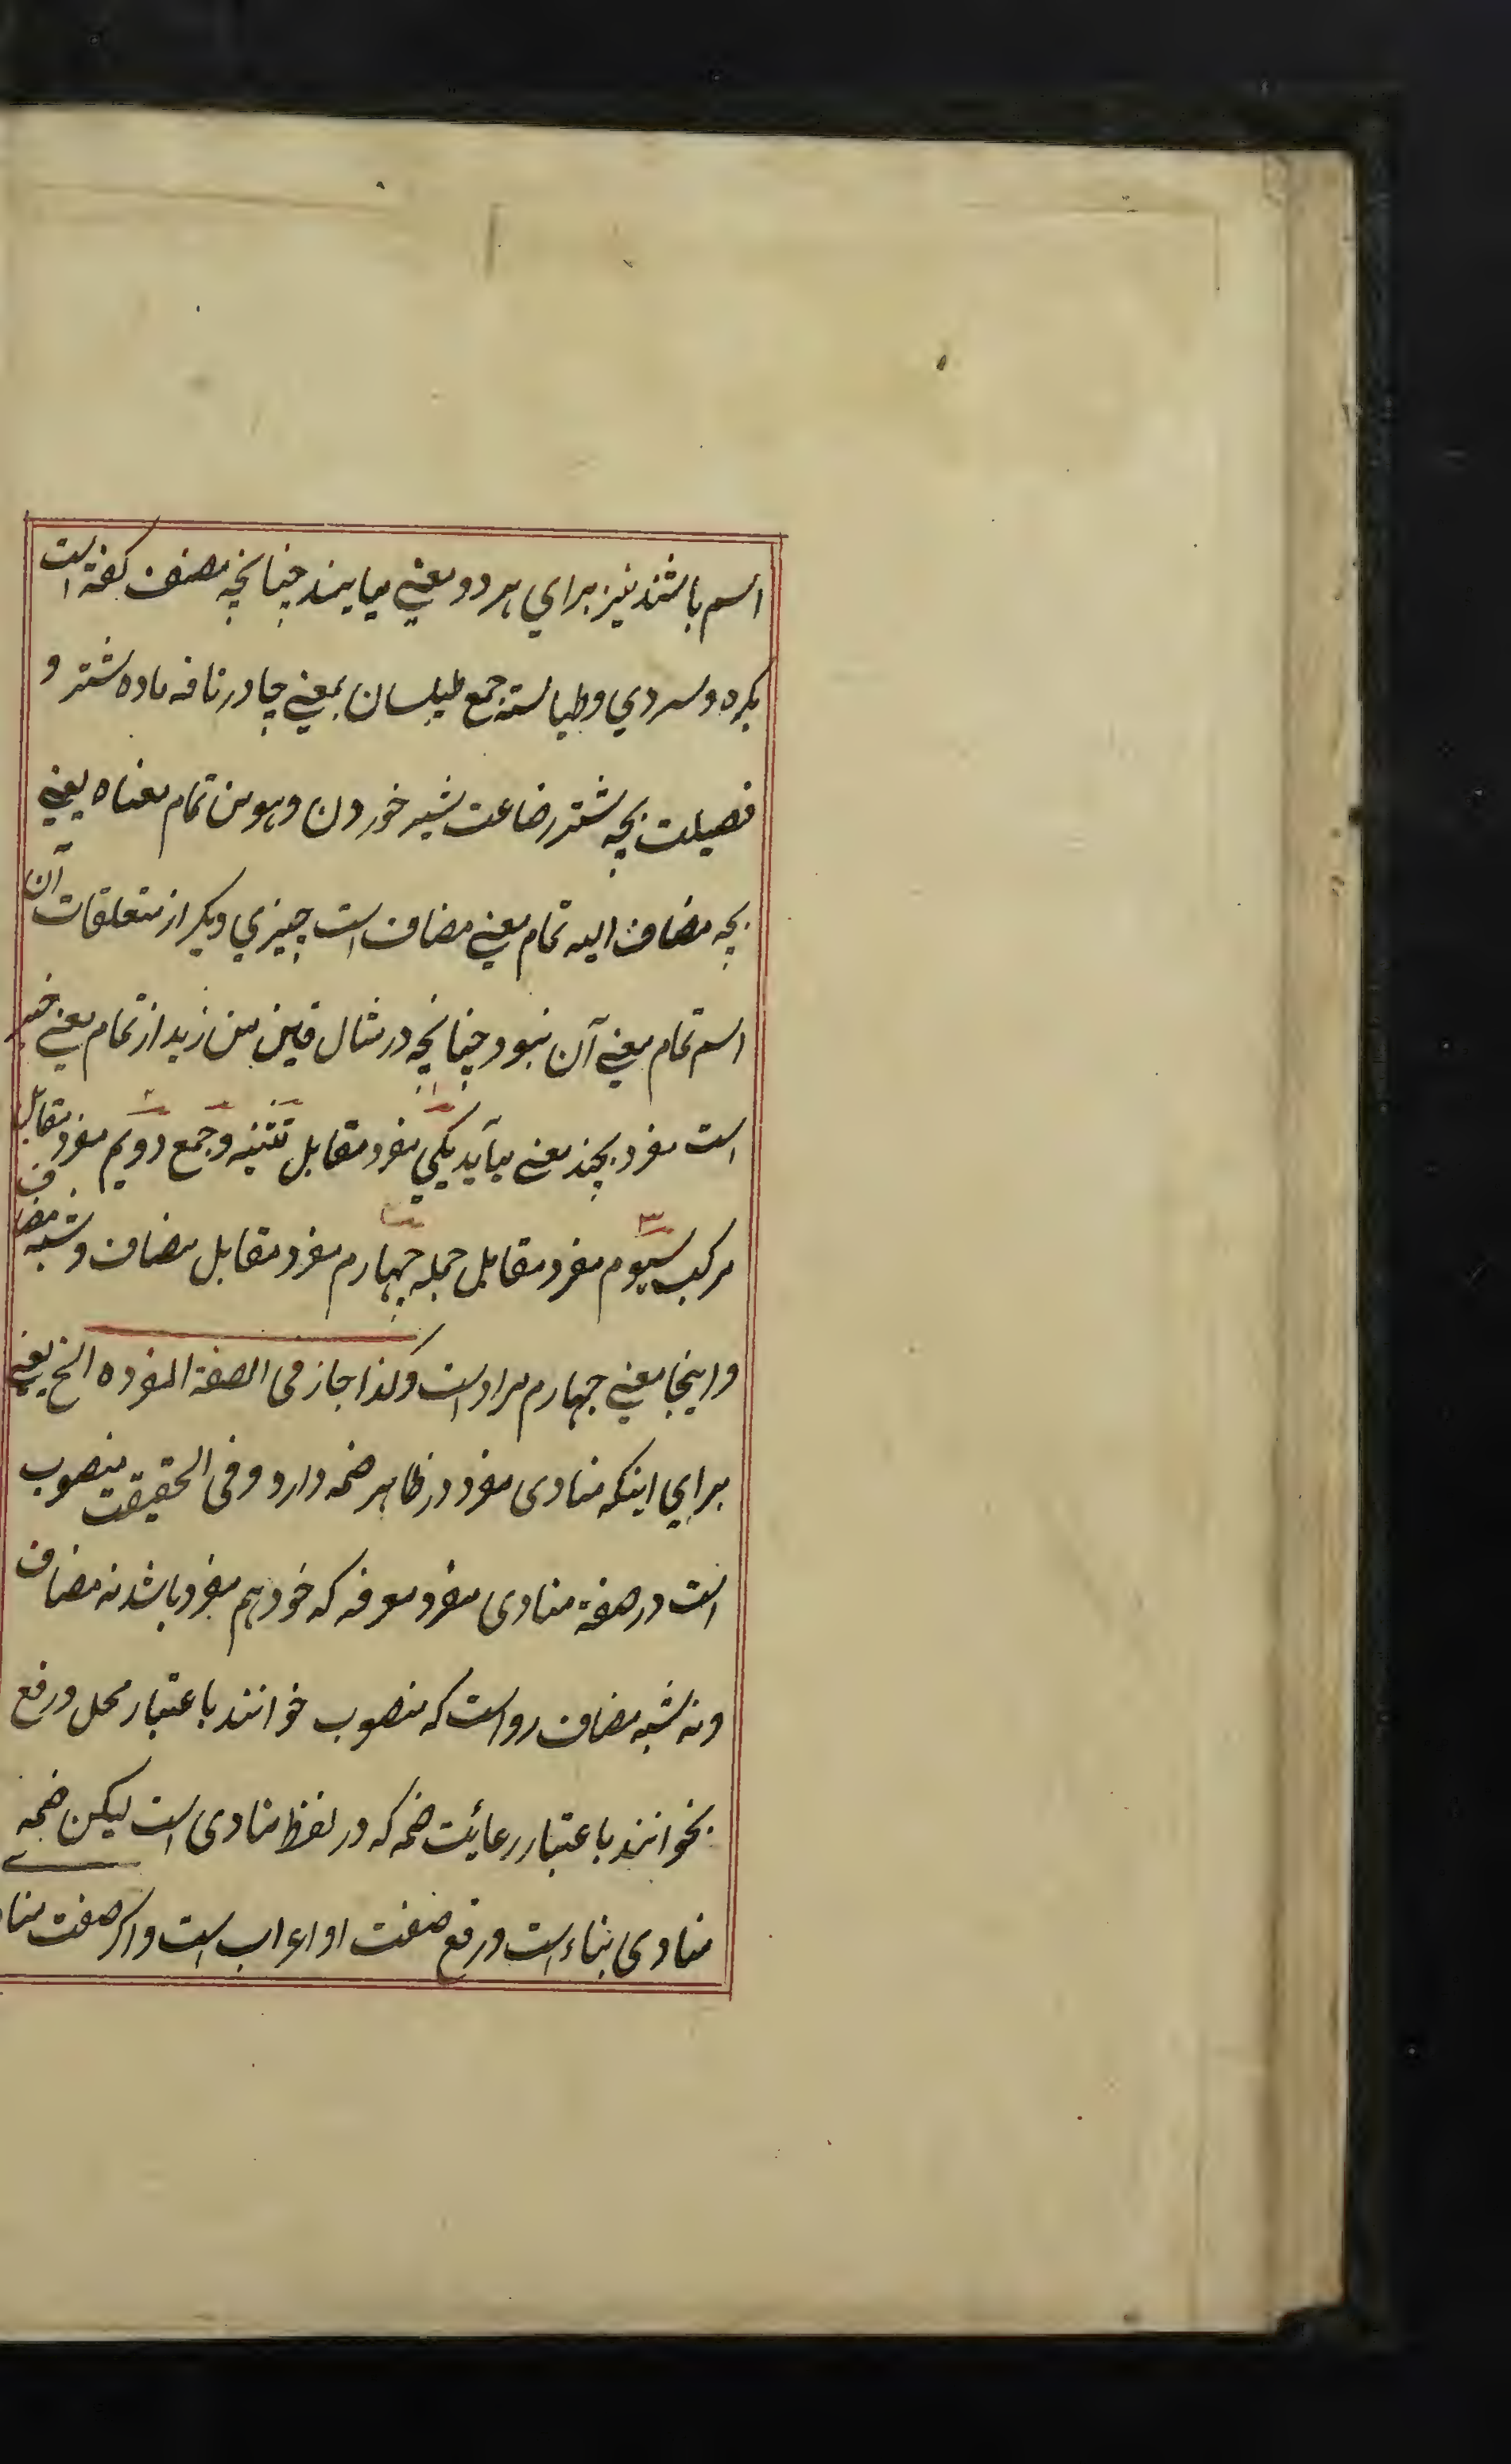 اسم باشند نیز برای هر دو معنے میایند چنانچه مصنف کفته است
بکره و سردي وطیالسة جمع طیلسان بمعنے چادر ناقه ماده شتر و
فصیلت بچه شتر رضاعت شیر خوردن وهو من تمام معناه یعنے
بچه مضاف الیه تمام معنے مضاف است چیزي دیکر از متعلقات آن
اسم تمام معنے آن نبود چنانچه در مثال من زید از تمام معنے خیر
است مفرد بچند معنے میآید یکي مفرد مقابل تثنیه و جمع دویم مفرد مقابل
مرکب سیوم مفرد مقابل جمله چهارم مفرد مقابل مضاف و شبه مضاف
واینجا معنے چهارم مراد است وکذا جاز فی الصفة المفرده الخ یعنے
براي اینکه منادی مفرد در ظاهر ضمه دارد و فی الحقیقت منصوب
است در صفة منادی مفرد معرفه که خود هم مفرد باشد نه مضاف
ونه شبه مضاف رواست که منصوب خوانند باعتبار محل ورفع
بخوانند باعتبار رعائت ضمه که در لفظ منادی است لیکن ضمه
منادی بناء است ورفع صفت او اعراب است واکر صفت منا